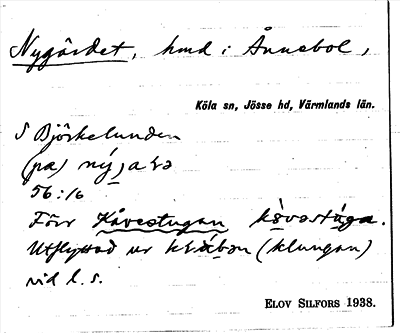 Nygårdet, hmd i Ånnebol,
Köla sn, Jösse hd, Värmlands län.
S Björkelunden
(pa) ný,a
56:16
Förr Kåvestugan
Utflyttad ur (klungan)
vid l. s.
ELOV SILFORS 1938.